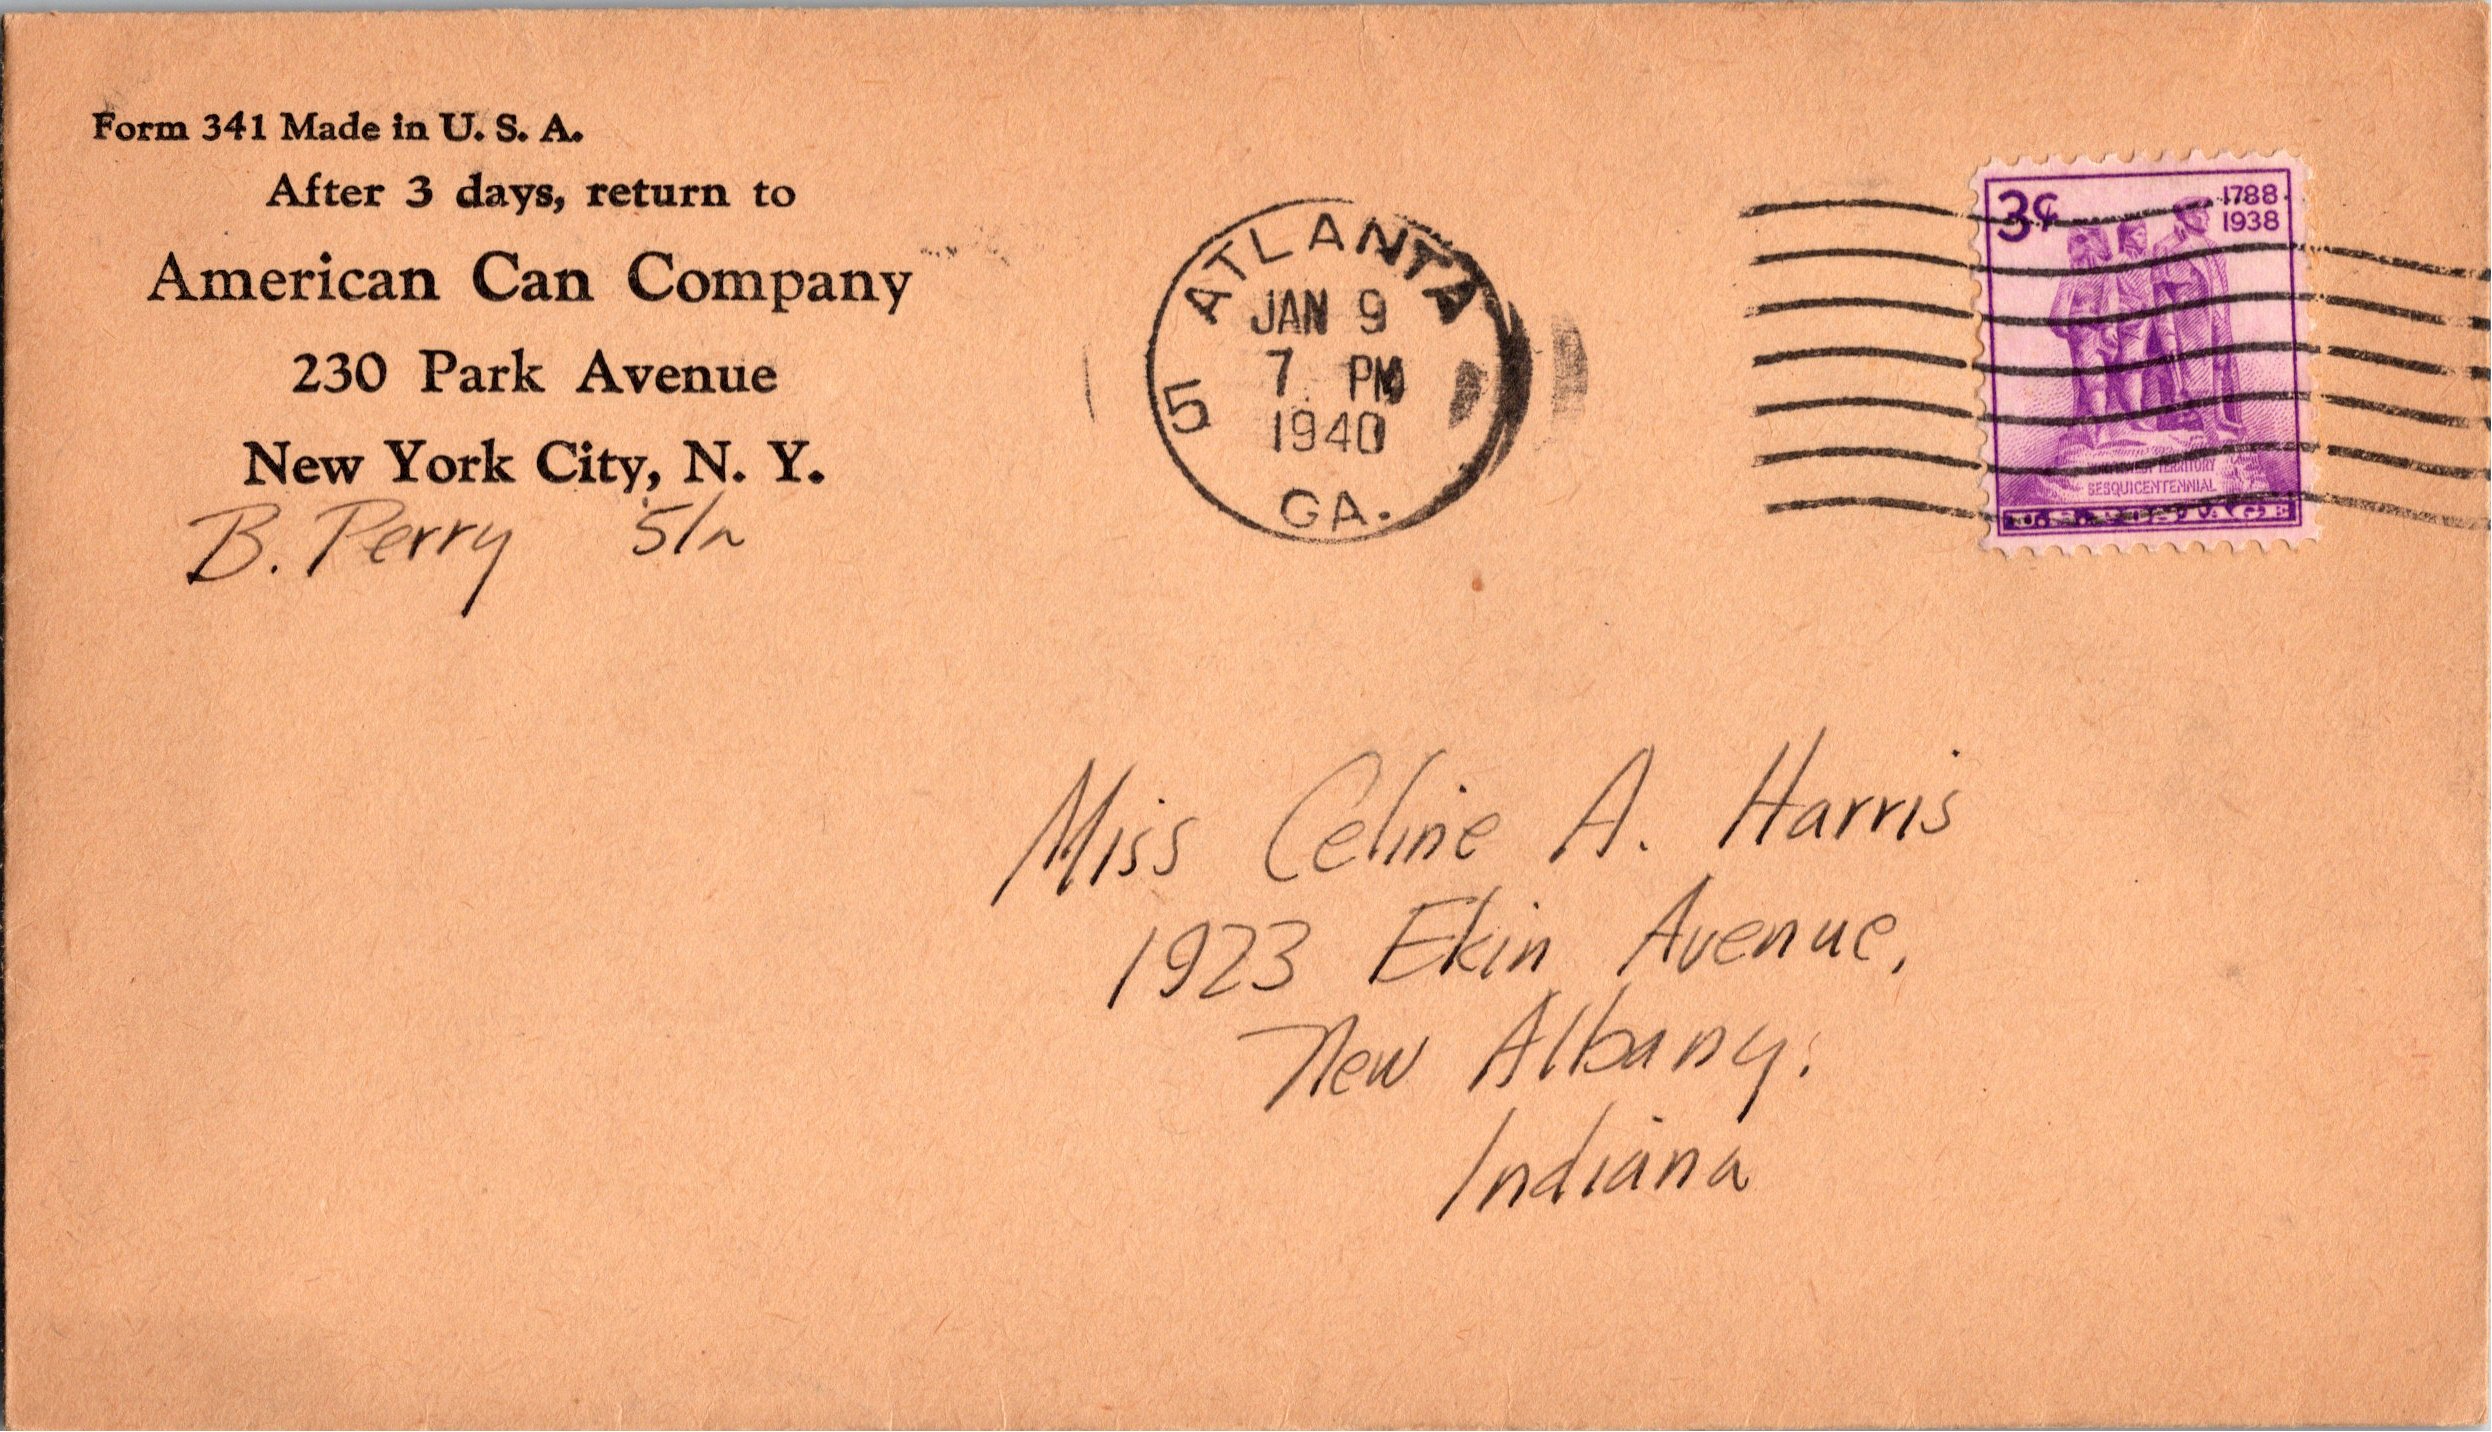 Form 341 Made in U. S. A.
After 3 days, return to
American Can Company
230 Park Avenue
New York City, N. Y.
B. Perry
ATLANTA
JAN 9
7 PM
1940
5
GA.
3¢
1788
1938
TERRITORY
SESQUICENTENNIAL
Miss Celine A. Harris
1923 Ekin Avenue,
New Albany.
Indiana